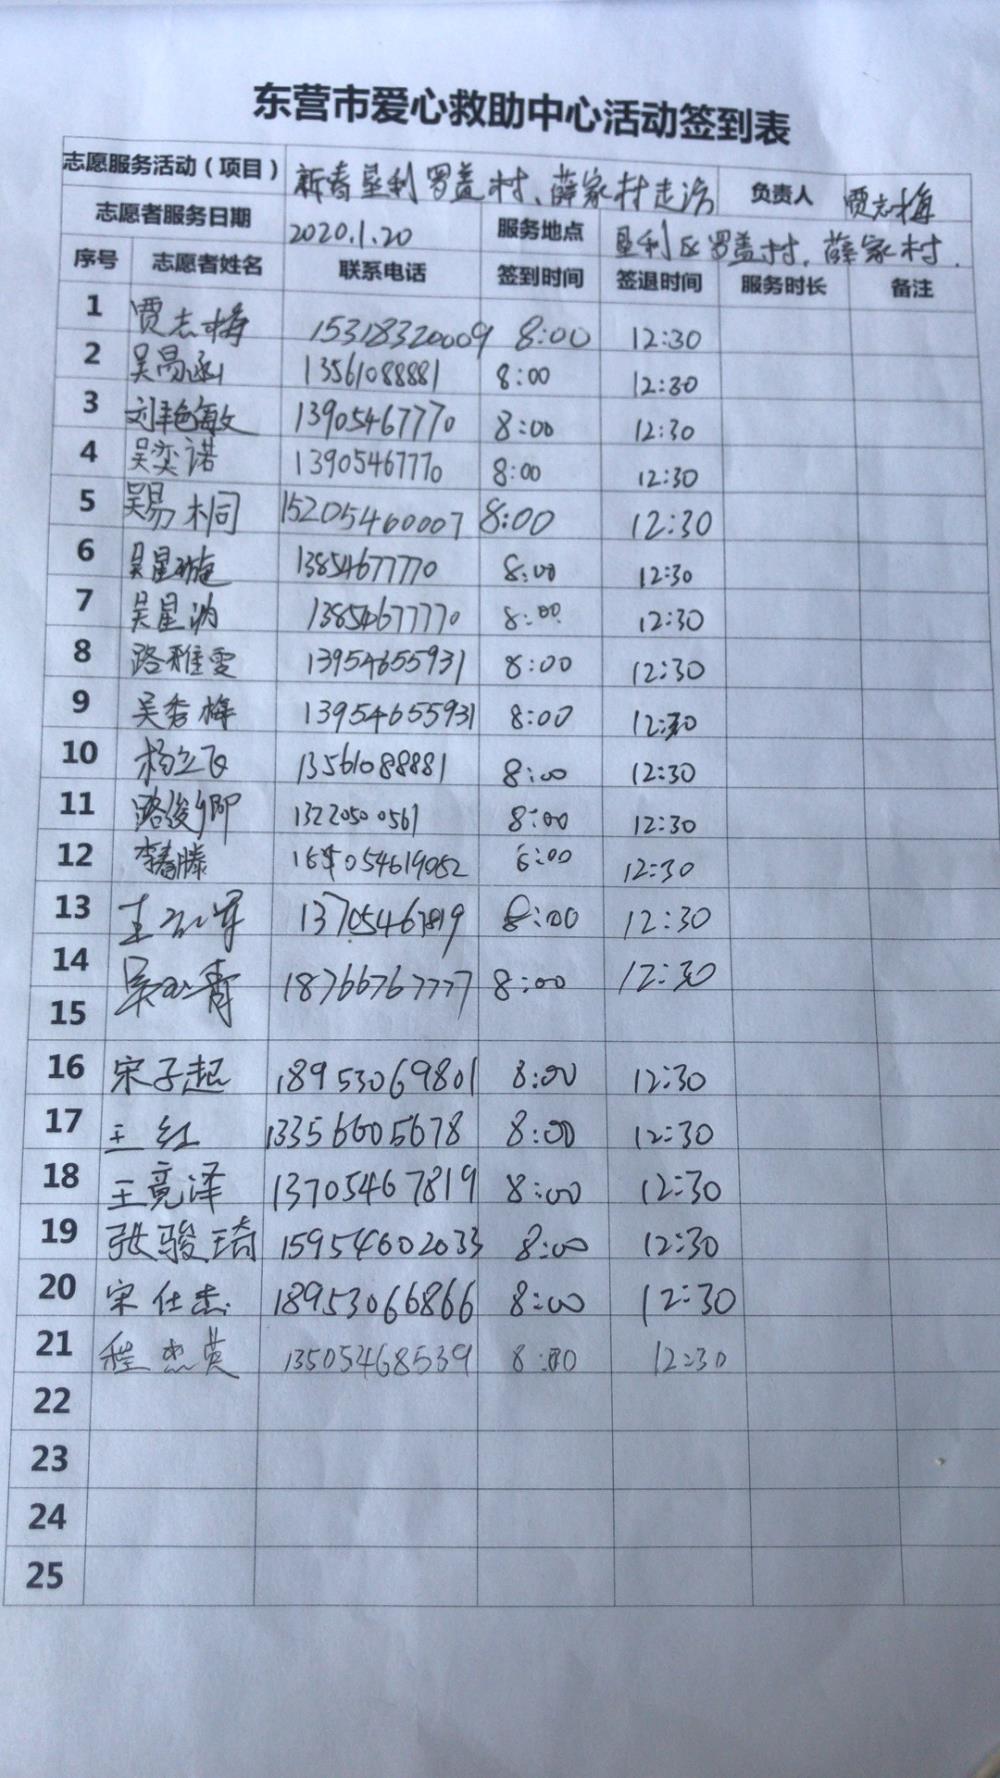 东营市爱心救助中心活动签到表
志愿服务活动（项目） 新春垦利罗盖村、薛家村走访 负责人 贾志梅
志愿者服务日期 2020.1.20 服务地点 垦利区罗盖村、薛家村.
序号 志愿者姓名 联系电话 签到时间 签退时间 服务时长 备注
1 贾志梅 15318320009 8:00 12:30
2 13561088881 8:00 12:30
3 刘艳敏 13905467770 8:00 12:30
4 吴奕诺 13905467770 8:00 12:30
5 吴易桐 15205460007 8:00 12:30
6 吴星璇 13854677770 8:00 12:30
7 吴星汭 13854677770 8:00 12:30
8 路雅雯 13954655931 8:00 12:30
9 吴秀梅 13954655931 8:00 12:30
10 杨立飞 13561088881 8:00 12:30
11 路俊卿 13220500561 8:00 12:30
12 李春滕 8:00 12:30
13 13705467819 8:00 12:30
14 18766767777 8:00 12:30
15
16 宋子起 18953069801 8:00 12:30
17 王红 13356605678 8:00 12:30
18 王竟泽 13705467819 8:00 12:30
19 张骏琦 15954602033 8:00 12:30
20 宋仕杰 18953066866 8:00 12:30
21 程杰英 13505468539 8:00 12:30
22
23
24
25